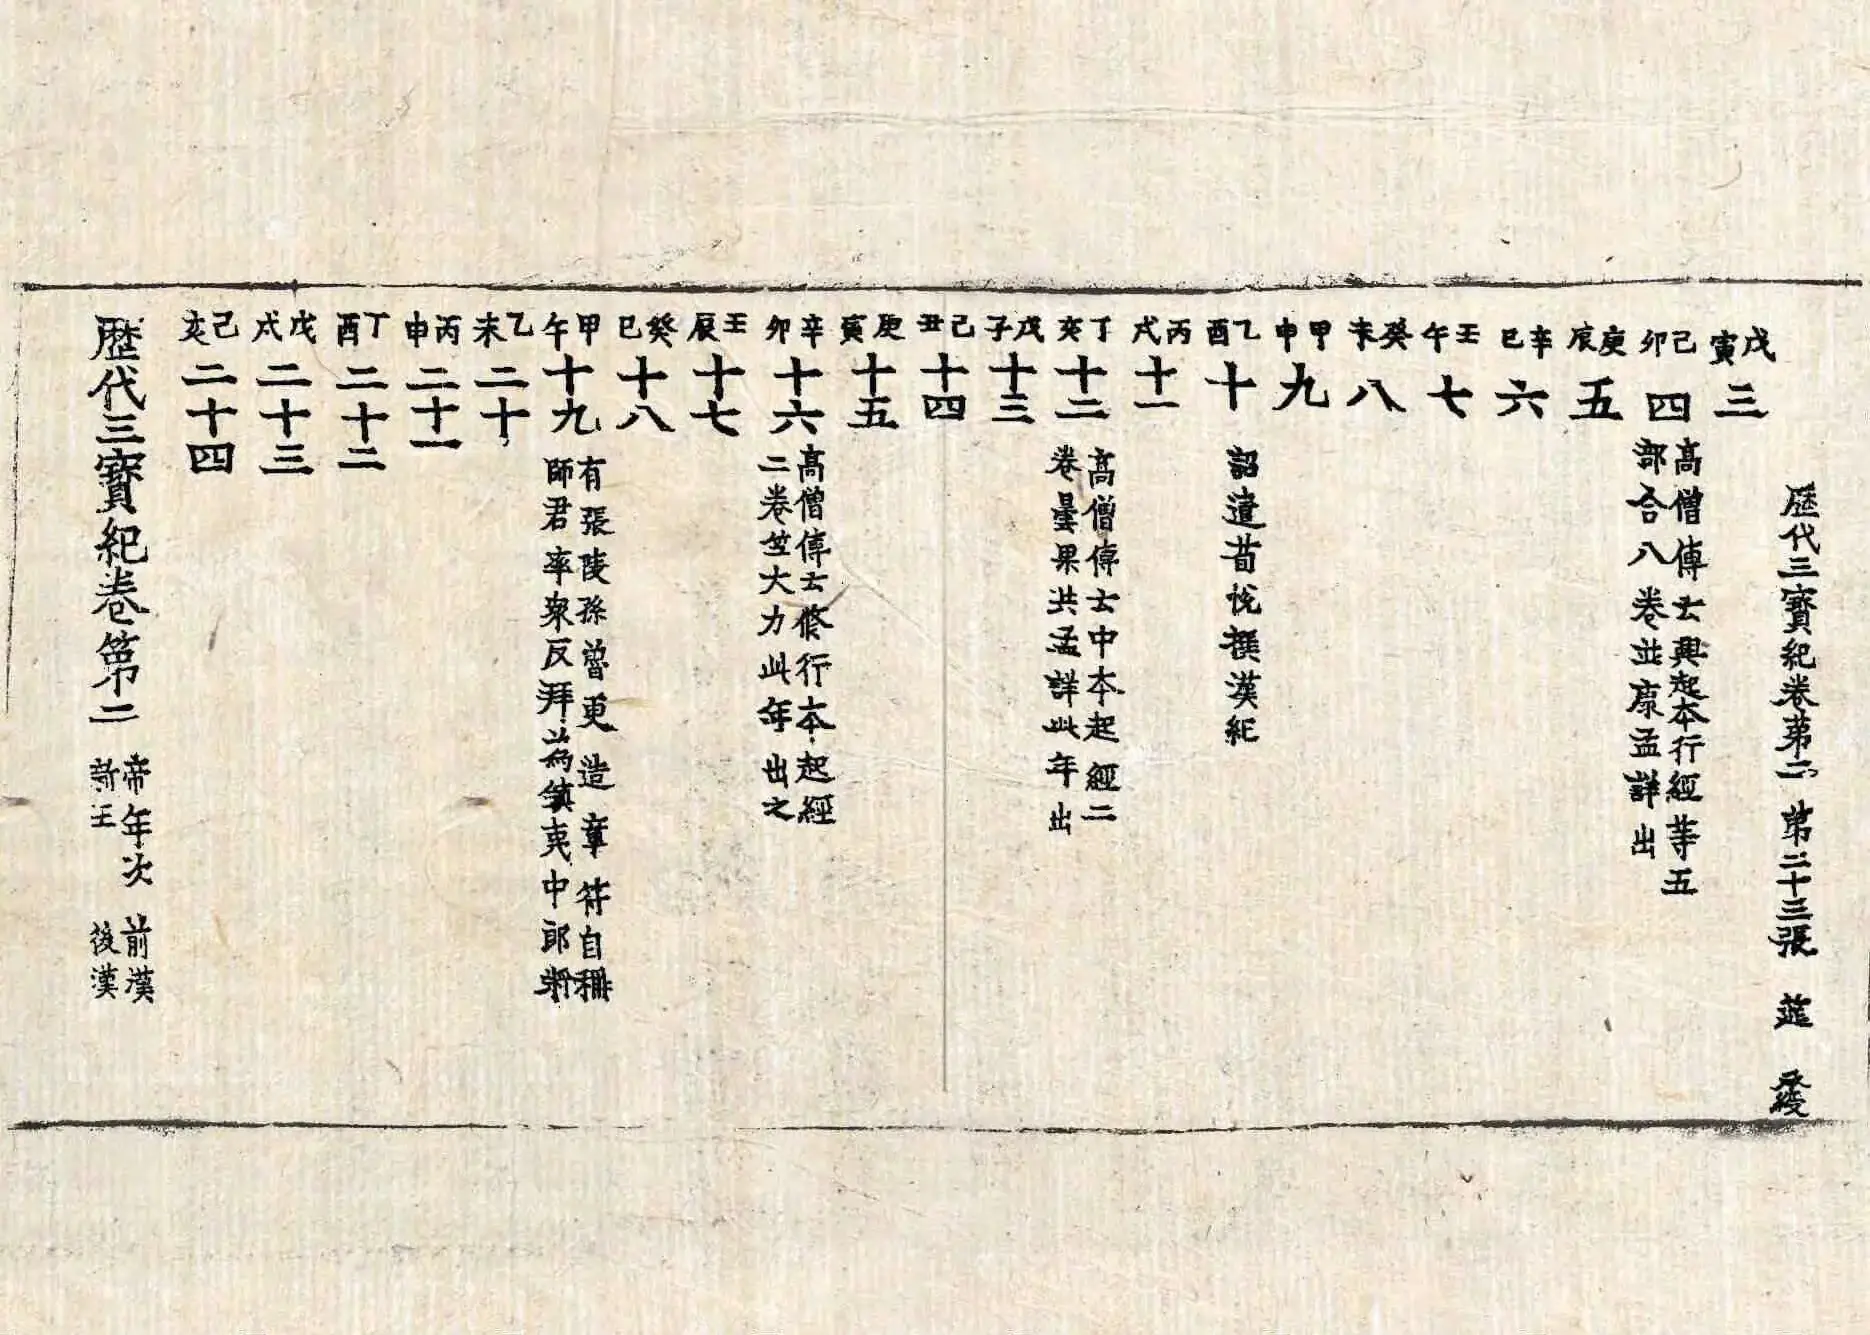 歴代三寳紀卷苐二 苐二十三張 莚
戊寅 三
己卯 四 高僧傳云興起本行經等五
部合八卷並康孟詳出
庚辰 五
辛巳 六
壬午 七
癸未 八
甲申 九
乙酉 十 詔遣荀悅撰漢紀
丙戌 十一
丁亥 十二 高僧傳云中本起經二
卷曇果共孟詳此年出
戊子 十三
己丑 十四
庚寅 十五
辛卯 十六 高僧傳云修行本起經
二卷竺大力此年出之
壬辰 十七
癸巳 十八
甲午 十九 有張陵孫曾更造章符自稱
師君率衆反拜爲鎮夷中郎將
乙未 二十
丙申 二十一
丁酉 二十二
戊戌 二十三
己亥 二十四
歴代三寳紀卷第二 帝年次 前漢
新王 後漢